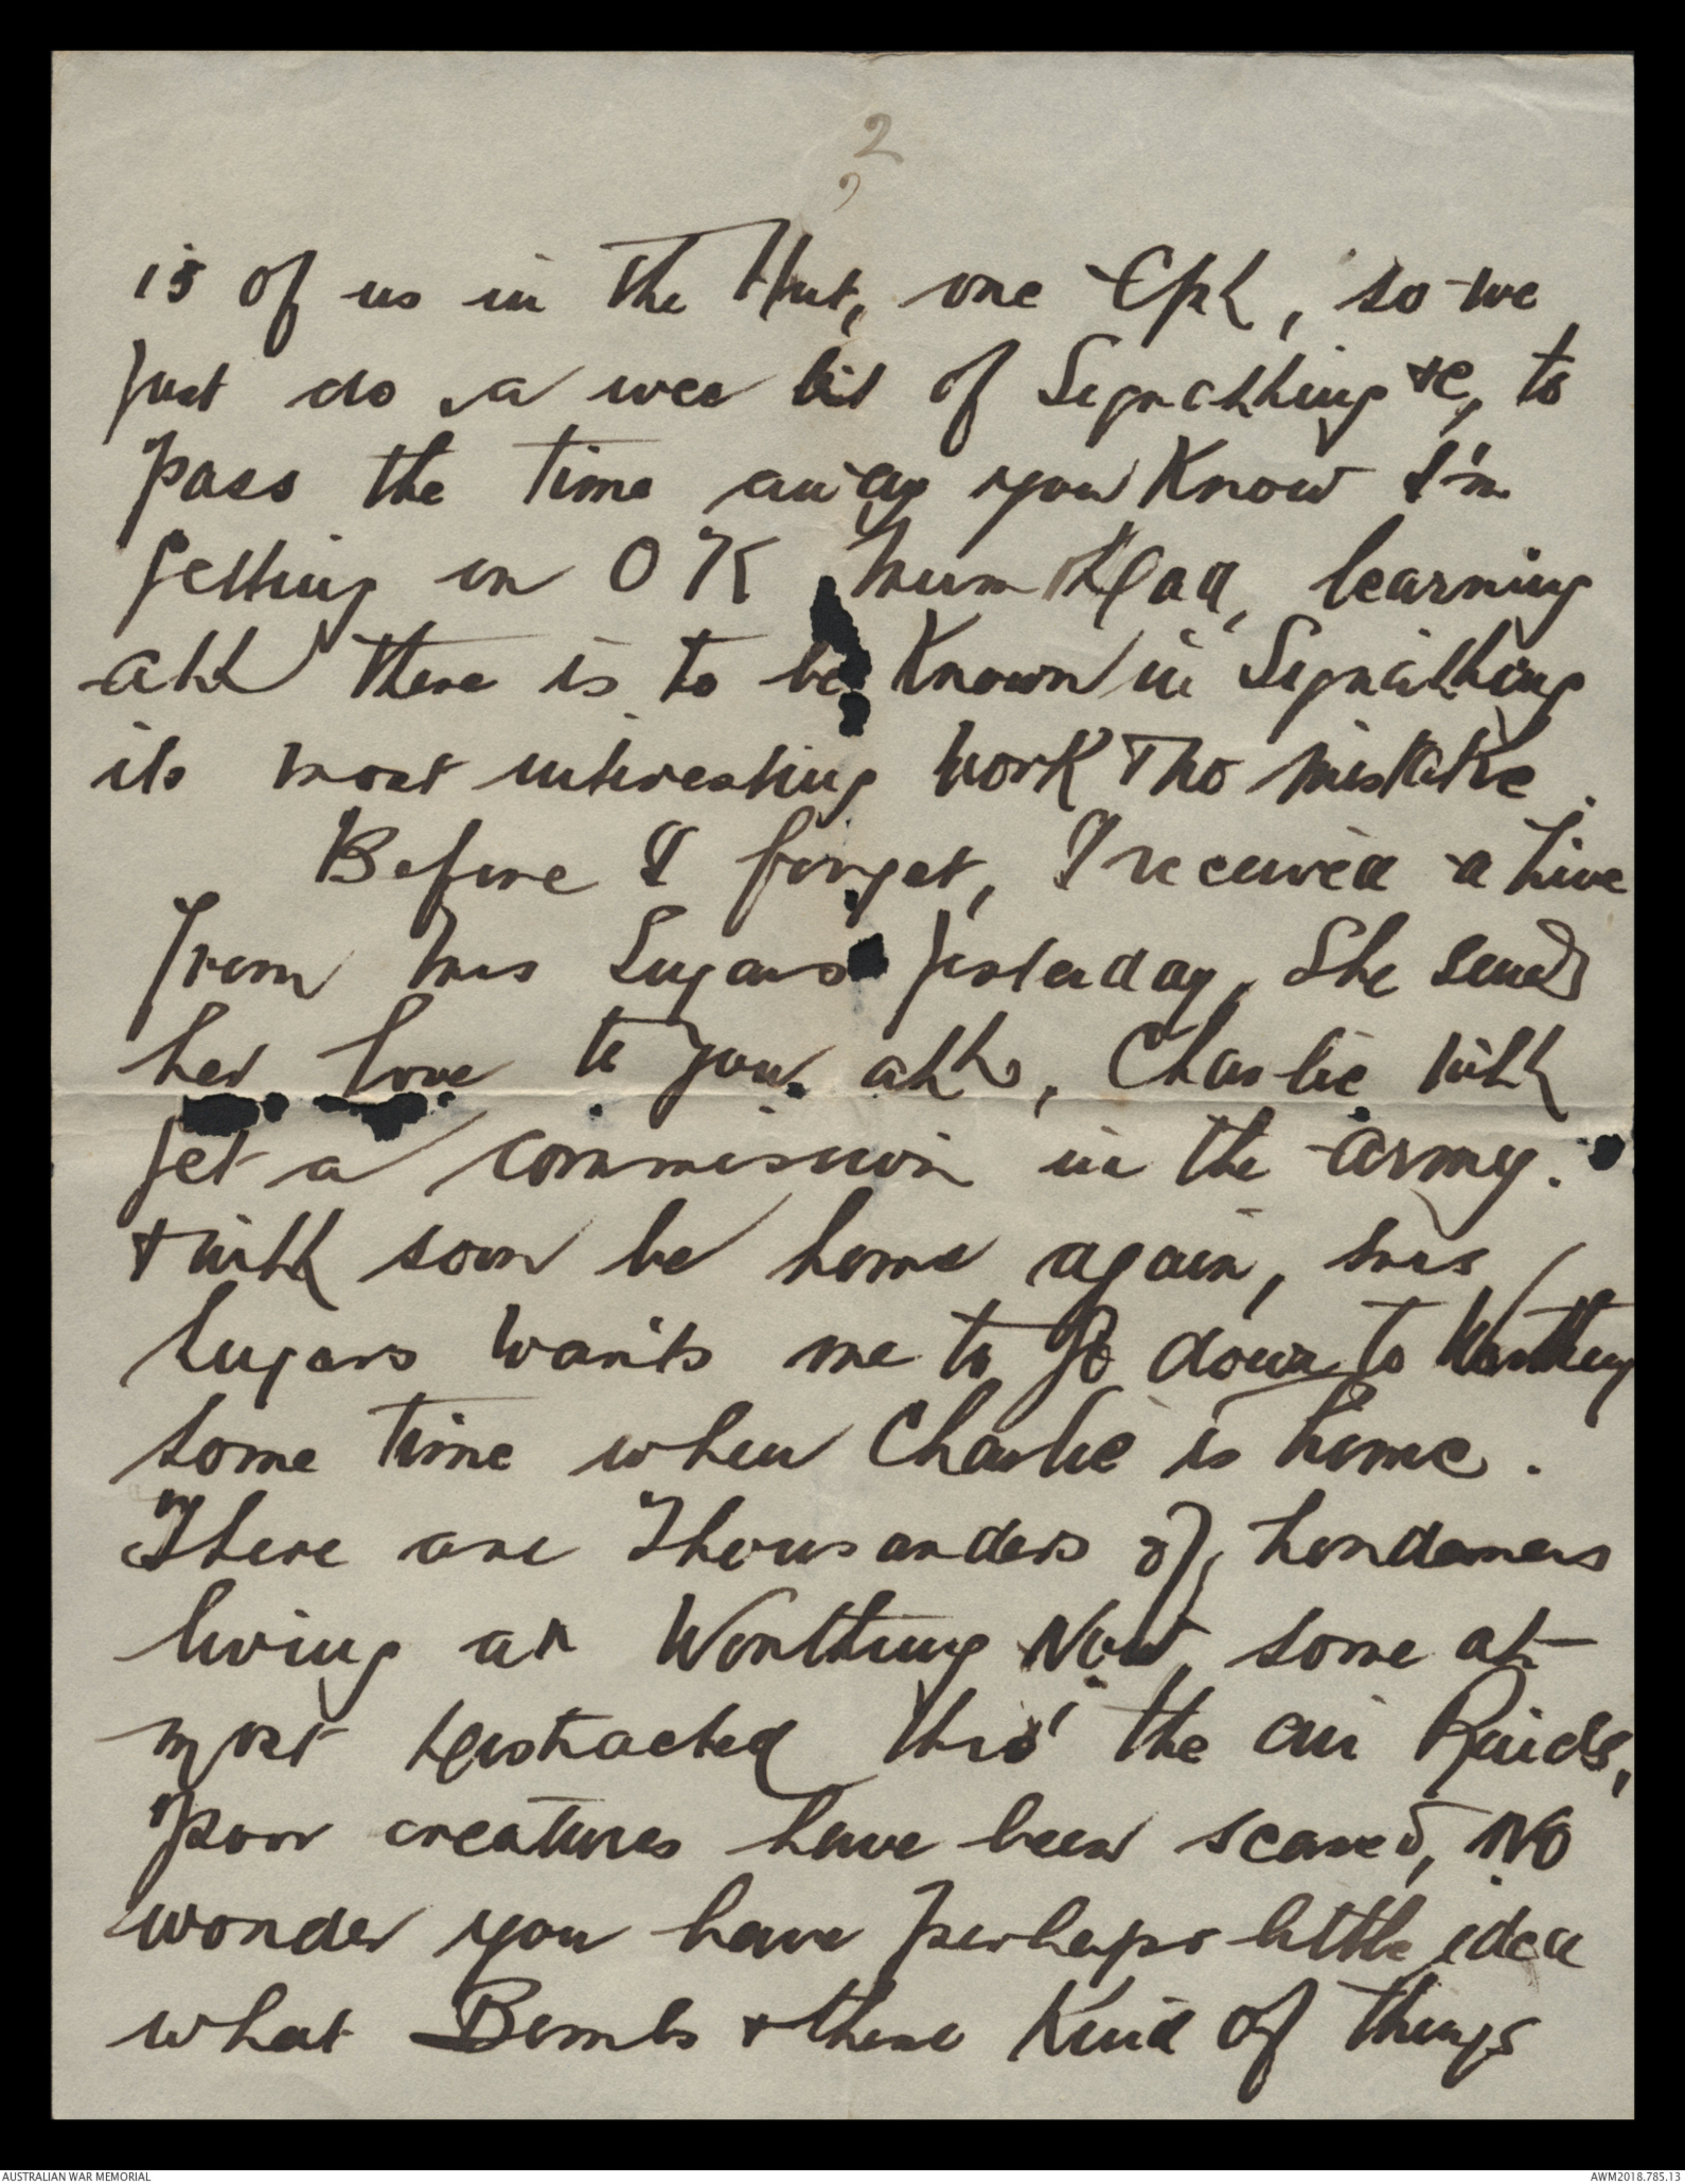 2
is of us in the Hut, one Cpl, so we
just do a wee bit of Signalling &c, to
pass the time away you Know I'm
getting on O K Mum & Dad, learning
all there is to be Known in Signalling
its most interesting work & no mistake.
Before I forget, I received a line
from Mrs Lugars yesterday, She sends
her love to you all, Charlie will
get a commission in the army.
& will soon be home again, Mrs
Lugars wants me to go down to Worthing
some time when Charlie is home.
There are Thousanders of Londoners
living at Worthing Now, some al-
most distracted thro' the air Raids,
poor creatures have been scared, No
wonder you have perhaps little idea
what Bombs & these Kind of things
AUSTRALIAN WAR MEMORIAL
AWM2018.785.13